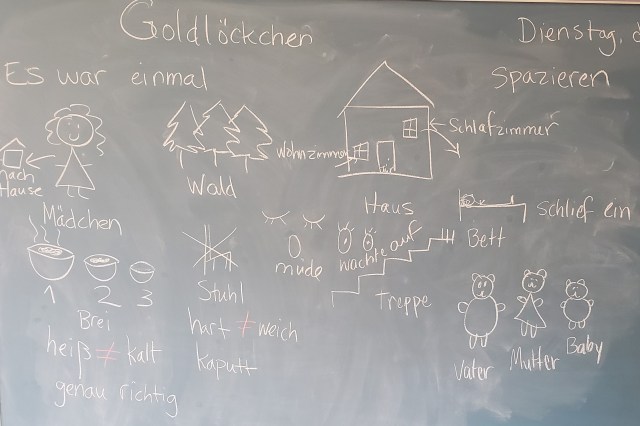 Goldlöckchen
Dienstag, d
Es war einmal
spazieren
nach
Hause
Mädchen
Wald
Wohnzimmer
Tür
Schlafzimmer
Haus
schlief ein
Bett
müde
wachte auf
Treppe
1 2 3
Brei
heiß ≠ kalt
genau richtig
Stuhl
hart ≠ weich
kaputt
Vater
Mutter
Baby